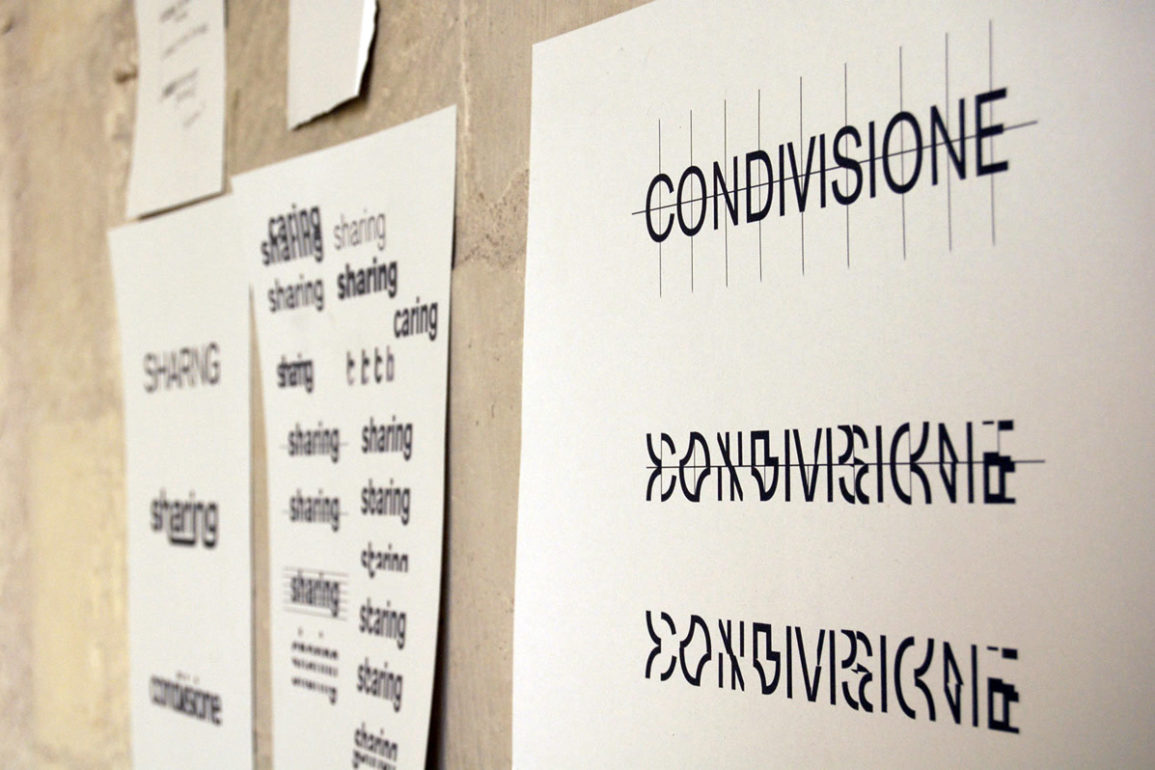 SHARNG
sharing
condivisione
caring
sharing sharing
sharing sharing
caring
sharing t t t b
sharing sharing
sharing sharing
sharing
sharing
sharing
sharing
sharing
CONDIVISIONE
CONDIVISIONE
CONDIVISIONE